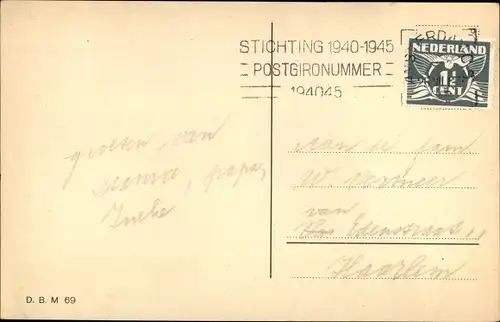 STICHTING 1940-1945
POSTGIRONUMMER
194045
NEDERLAND
1½
CENT
groeten van
Mama, papa,
Ineke
Aan de fam
W.
van
Edenstraat
Haarlem
D. B. M 69